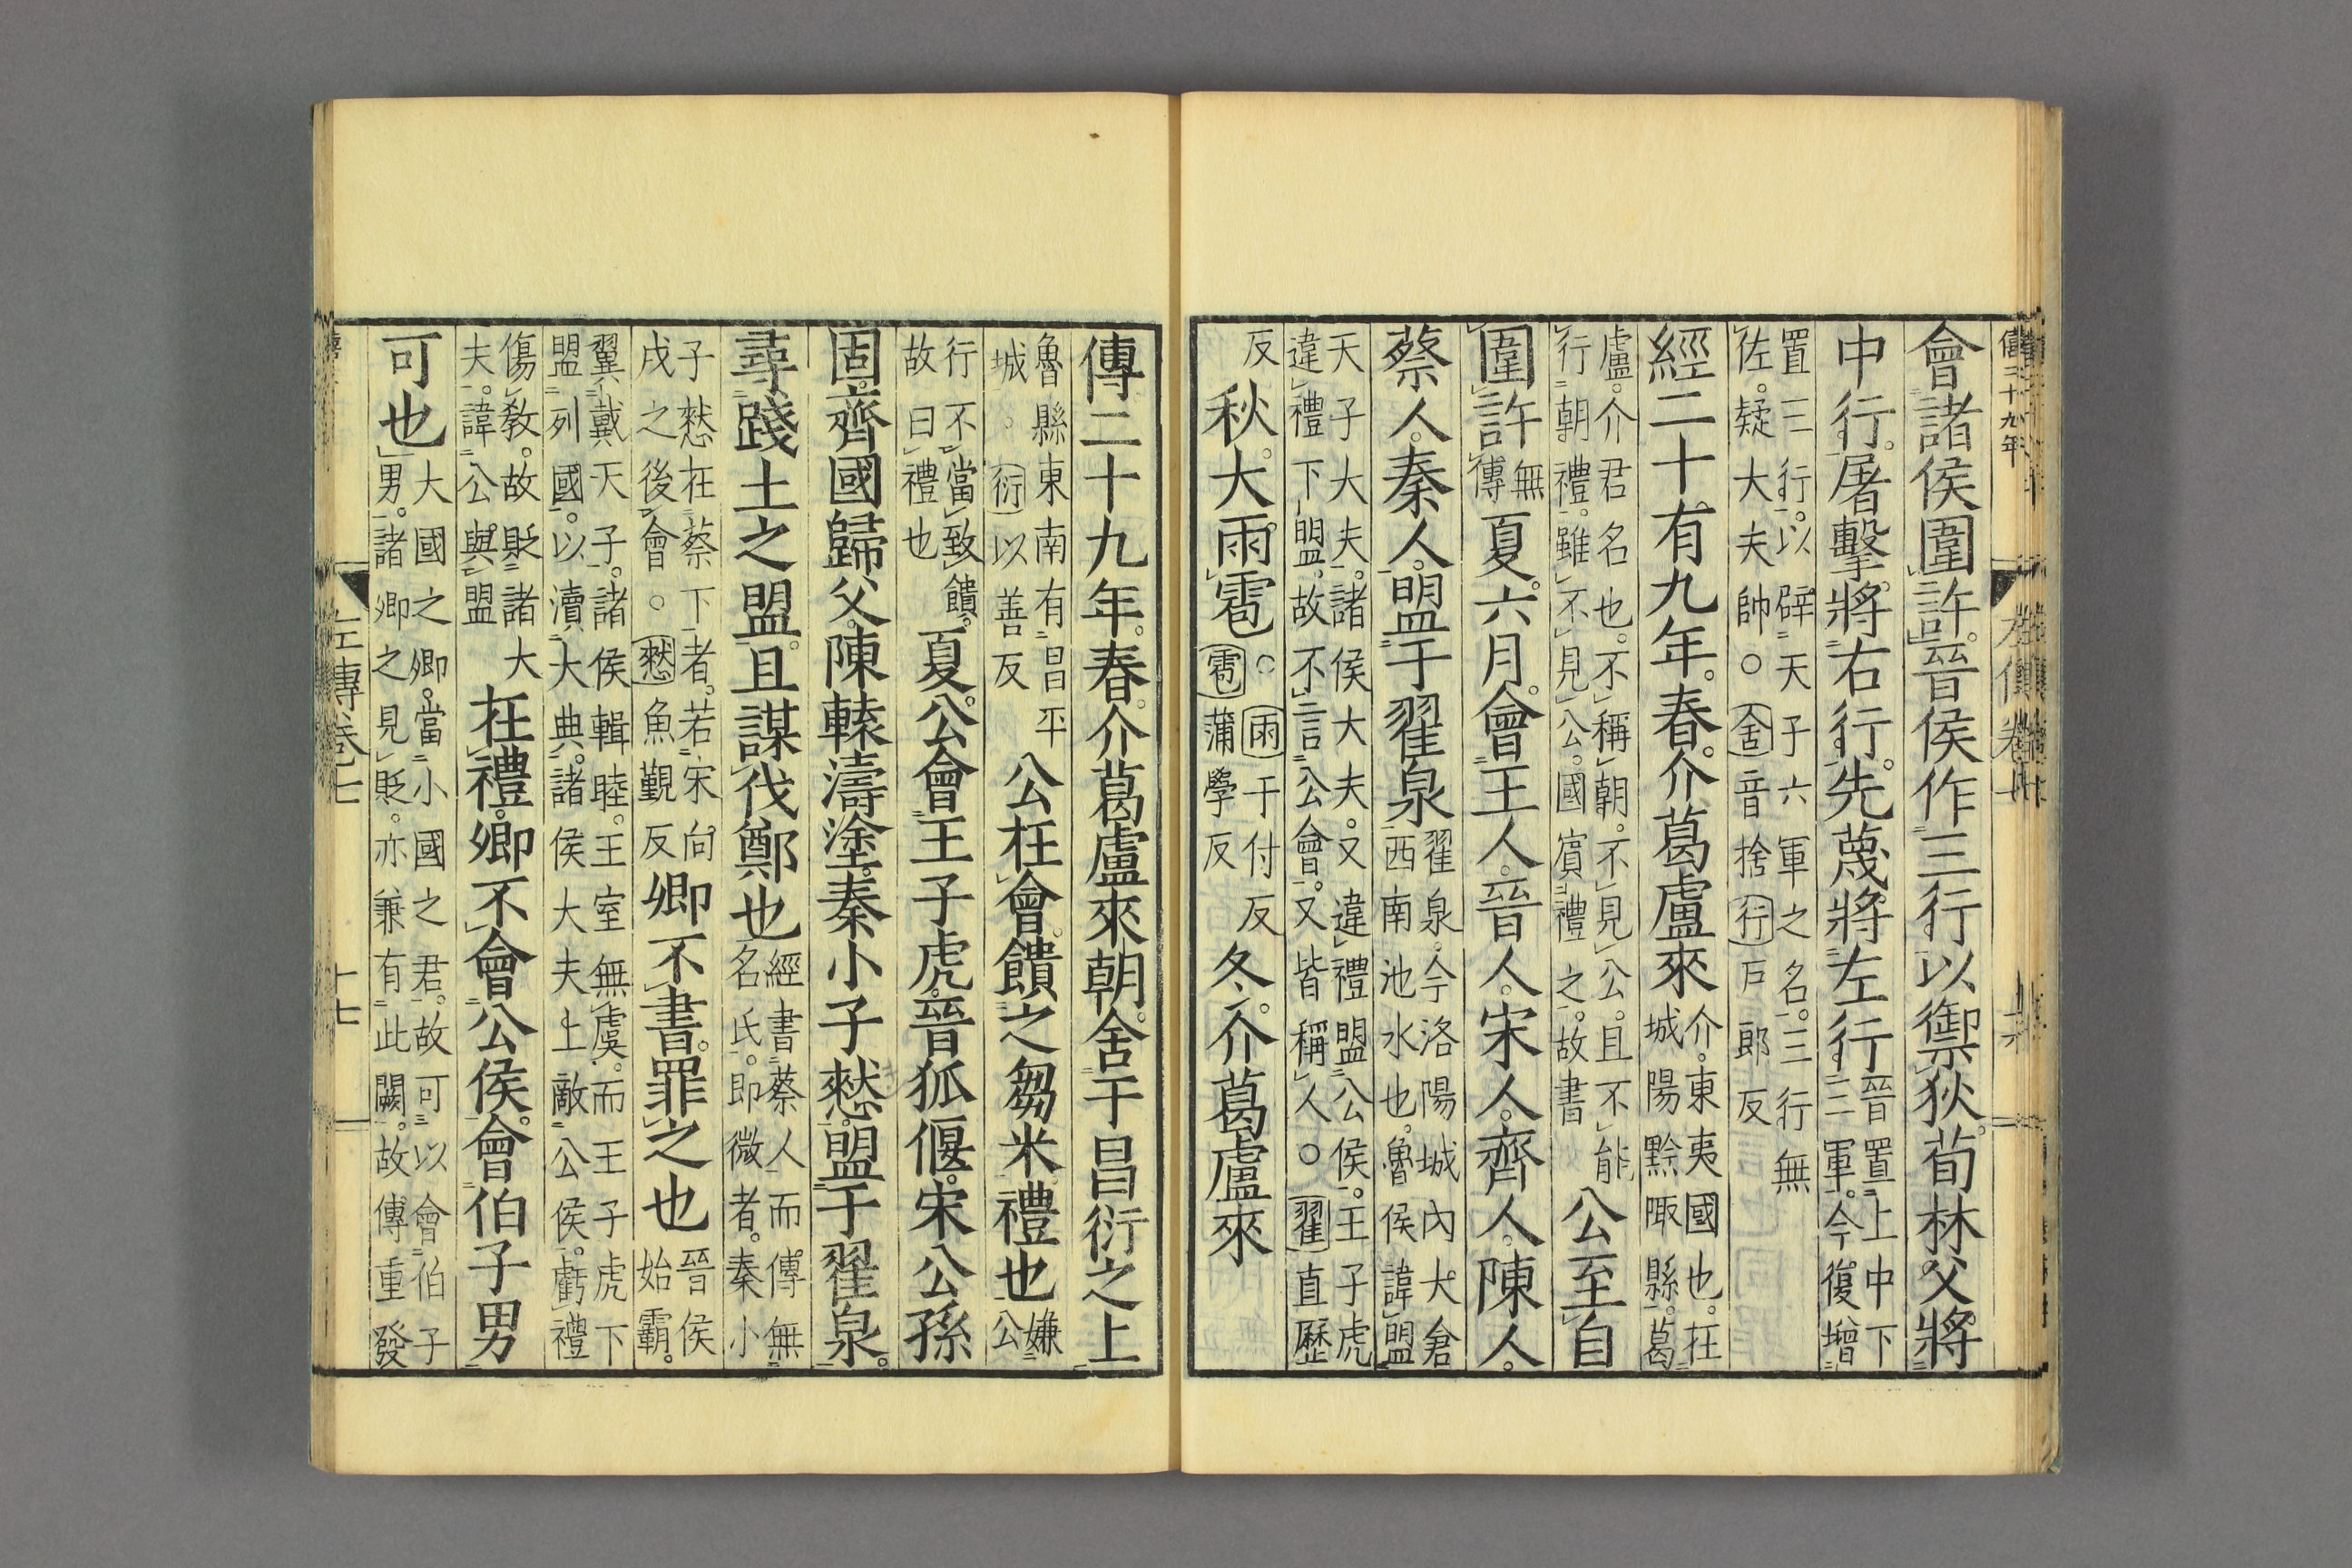 僖二十九年
會諸侯圍許。晉侯作三行以禦狄。荀林父將
中行。屠擊將右行。先蔑將左行 晉置上中下二軍。今復增
置三行。以辟天子六軍之名。三行無佐。疑大夫帥○舍音捨行戸郎反
經二十有九年。春。介葛盧來 介。東夷國也。在城陽黔陬縣。葛
盧。介君名也。不稱朝。不見公。且不能行朝禮。雖不見公。國賓禮之。故書 公至自
圍許 無傳 夏。六月。會王人。晉人。宋人。齊人。陳人。
蔡人。秦人。盟于翟泉 翟泉。今洛陽城內大倉西南池水也。魯侯諱盟
天子大夫。諸侯大夫。又違禮盟公侯。王子虎違禮下盟。故不言公會。又皆稱人○翟直歷
反 秋。大雨雹。○雨于付反雹蒲學反 冬。介葛盧來
傳二十九年。春。介葛盧來朝。舍于昌衍之上
魯縣東南有昌平城。衍以善反 公在會。饋之芻米。禮也 嫌公
行不當致饋。故曰禮也 夏。公會王子虎。晉狐偃。宋公孫
固。齊國歸父。陳轅濤塗。秦小子憖。盟于翟泉。
尋踐土之盟。且謀伐鄭也 經書蔡人而傳無名氏。即微者。秦小
子憖在蔡下者。若宋向戌之後會。○憖魚覲反 卿不書。罪之也 晉侯始霸。
翼戴天子。諸侯輯睦。王室無虞。而王子虎下盟列國。以瀆大典。諸侯大夫上敵公侯。虧禮
傷敎。故貶諸大夫。諱公與盟 在禮。卿不會公侯。會伯子男
可也 大國之卿。當小國之君。故可以會伯子男。諸卿之見貶。亦兼有此闕。故傳重發
左傳卷七
十七